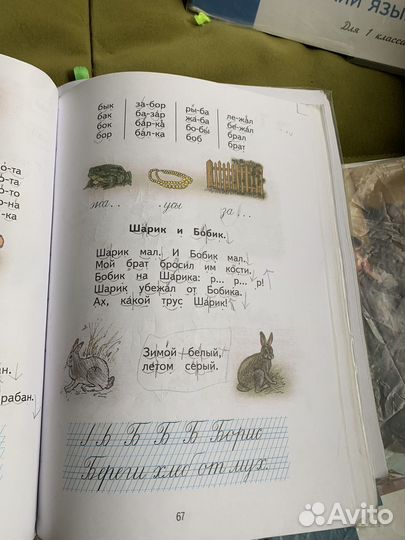 ИЙ ЯЗЫ
Для 1 класса
бык за́-бор ры́-ба ле-жа́л
бак ба-за́р жа́-ба бе-жа́л
бок ба́р-ка бо-бы́ брал
бор ба́л-ка боб брат
о́-та
о-та
о-то
о-на
-ка
жа.. .усы за..
Шарик и Бобик.
Шарик мал. И Бобик мал.
Мой брат бросил им кости.
Бобик на Шарика: р... р... р!
Шарик убежал от Бобика.
Ах, какой трус Шарик!
Зимой белый,
летом серый.
ан.
рабан.
1 ь Б Б Б Борис
Береги хлеб от мух.
67
Avito